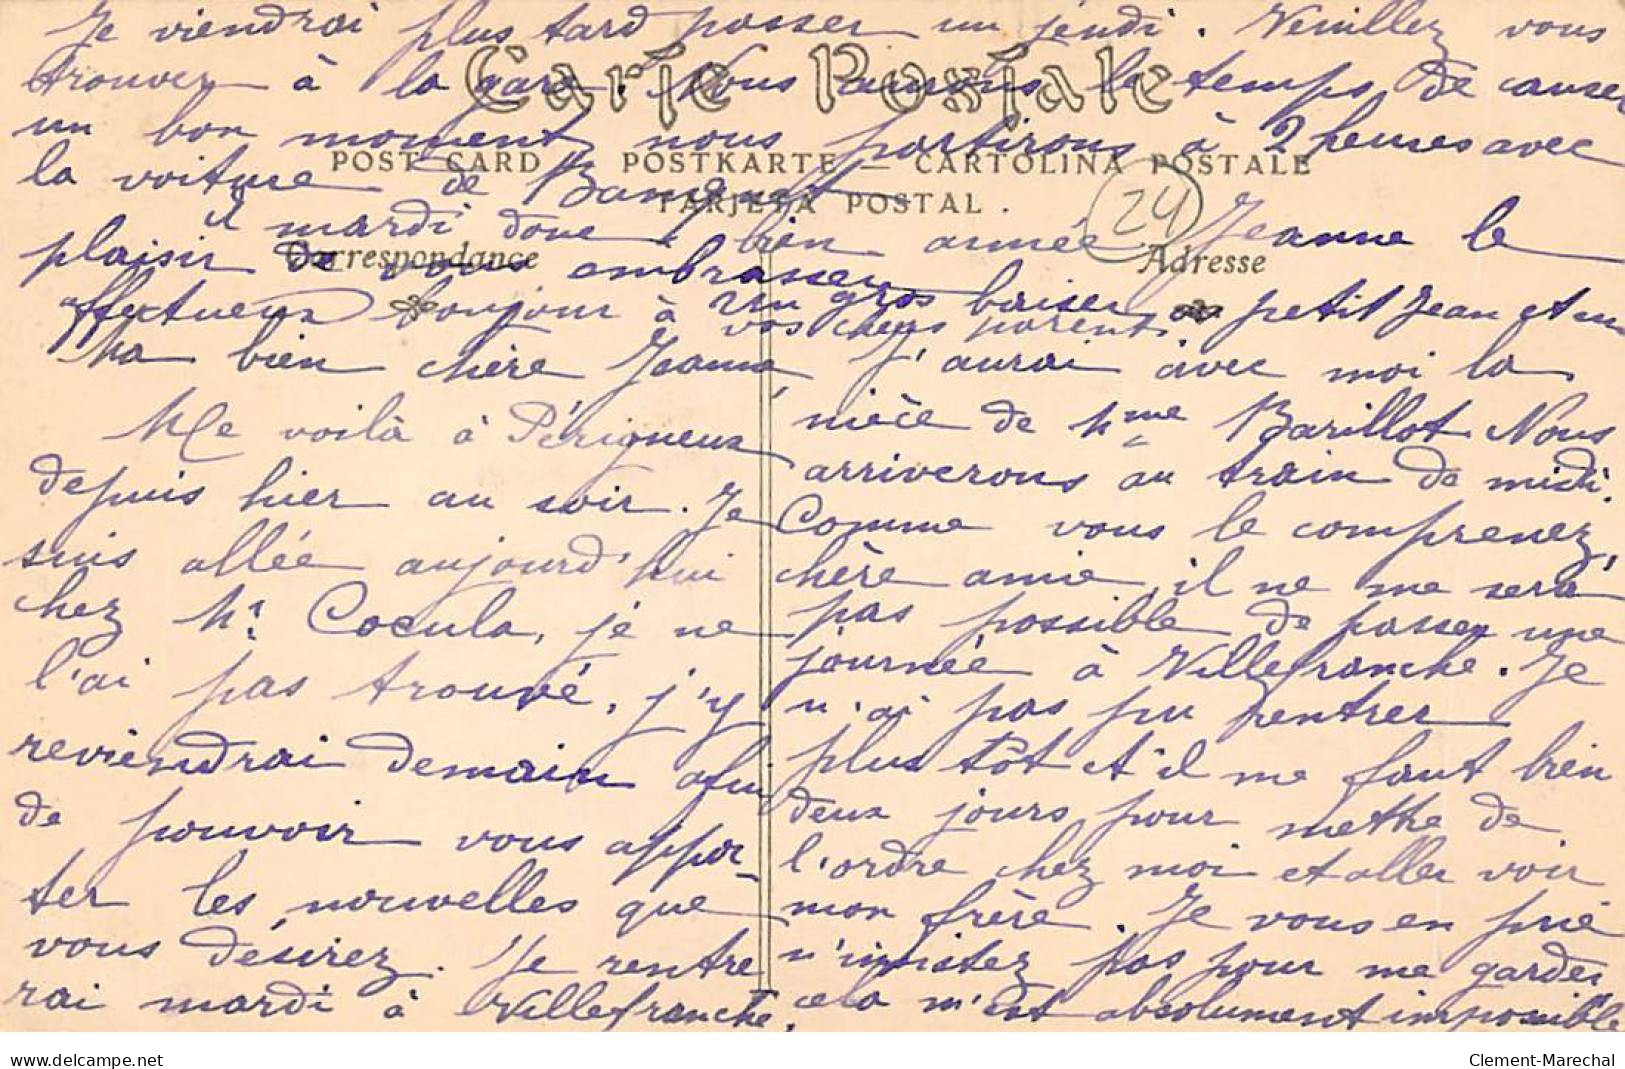 Ma bien chère Jeanne,
Me voilà à Périgueux
depuis hier au soir. Je
suis allée aujourd'hui
chez Mr. Cocula, je ne
l'ai pas trouvé, j'y
reviendrai demain afin
de pouvoir vous appor-
ter les nouvelles que
vous désirez. Je rentre
rai mardi à Villefranche.
J'aurai avec moi la
nièce de Mme Barillot. Nous
arriverons au train de midi.
Comme vous le comprenez,
chère amie, il ne me sera
pas possible de passer une
journée à Villefranche. Je
n'ai pas pu rentrer
plus tôt et il me faut bien
deux jours pour mettre de
l'ordre chez moi et aller voir
mon frère. Je vous en prie
n'insistez pas pour me garder
cela m'est absolument impossible
Je viendrai plus tard passer un jeudi. Veuillez vous
trouver à la gare. Nous aurons le temps de causer
un bon moment, nous partirons à 2 heures avec
la voiture de
A mardi donc bien aimée Jeanne le
plaisir de vous embrasser
Un gros baiser au petit Jean et un
affectueux bonjour à vos chers parents.
Carte Postale
POST CARD — POSTKARTE — CARTOLINA POSTALE
TARJETA POSTAL.
24
Correspondance
Adresse
www.delcampe.net
Clement-Marechal